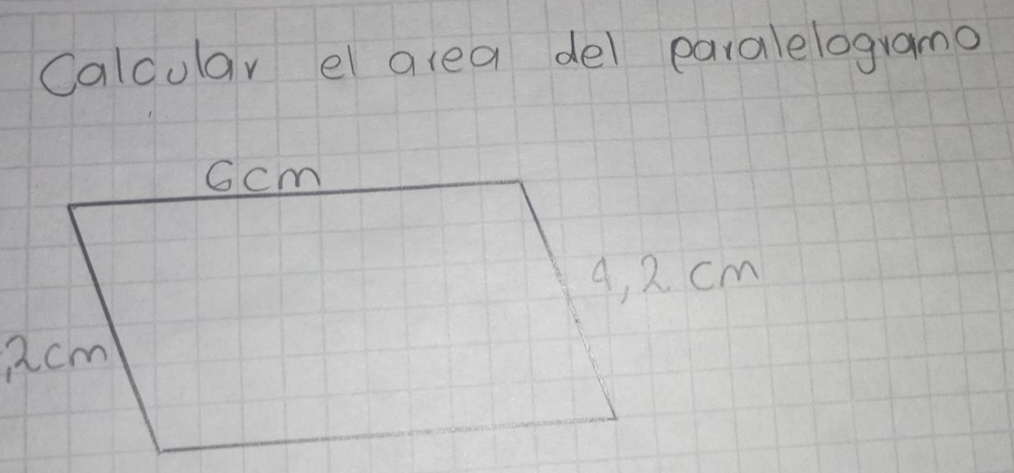 Calcular el area del paralelogramo
6cm
4,2 cm
,2cm